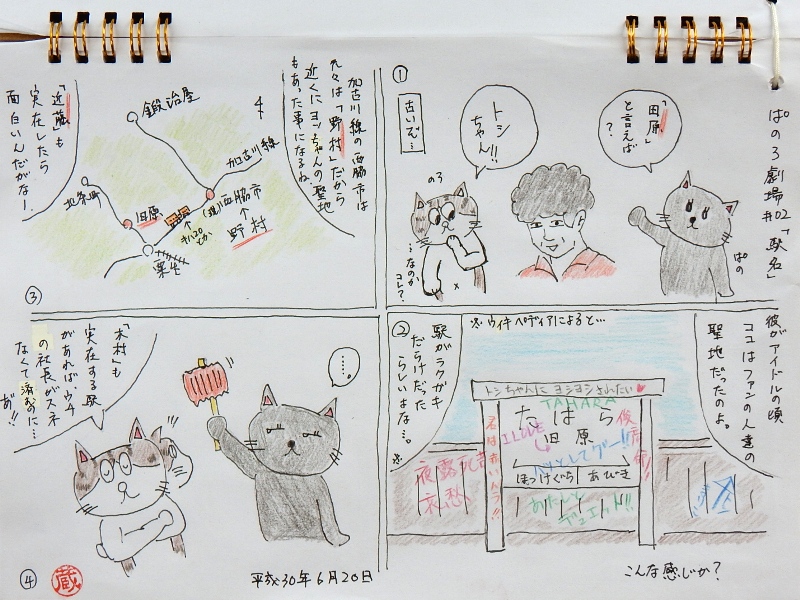 ぱのろ劇場
#02「駅名」
①
「田原」
と言えば
?
トシ
ちゃん!!
古いぞ…
のろ
…なのか
コレ?
ぱの
②
彼がアイドルの頃
ココはファンの人達の
聖地だったのよ。
※ウィキペディアによると…
駅がラクガキ
だらけだった
らしいよな…。※
トシちゃんに ヨシヨシされたい♥
TAHARA
たはら
田原
I LOVE
ハッとしてグー!!
ほっけぐち
あびき
あたしと
デュエット!!
夜露死苦
哀愁
こんな感じか?
③
加古川線の西脇市は
元々は「野村」だから
近くにヨッちゃんの聖地
もあった事になるね
鍛冶屋
加古川線
北条町
田原
(現)西脇市
↑
野村
キハ20
とか
粟生
「近藤」も
実在したら
面白いんだがなー!
④
….
「木村」も
実在する駅
があればウチ
の社長がスネ
なくて済むのに…
あ"!!
蔵
平成30年6月20日